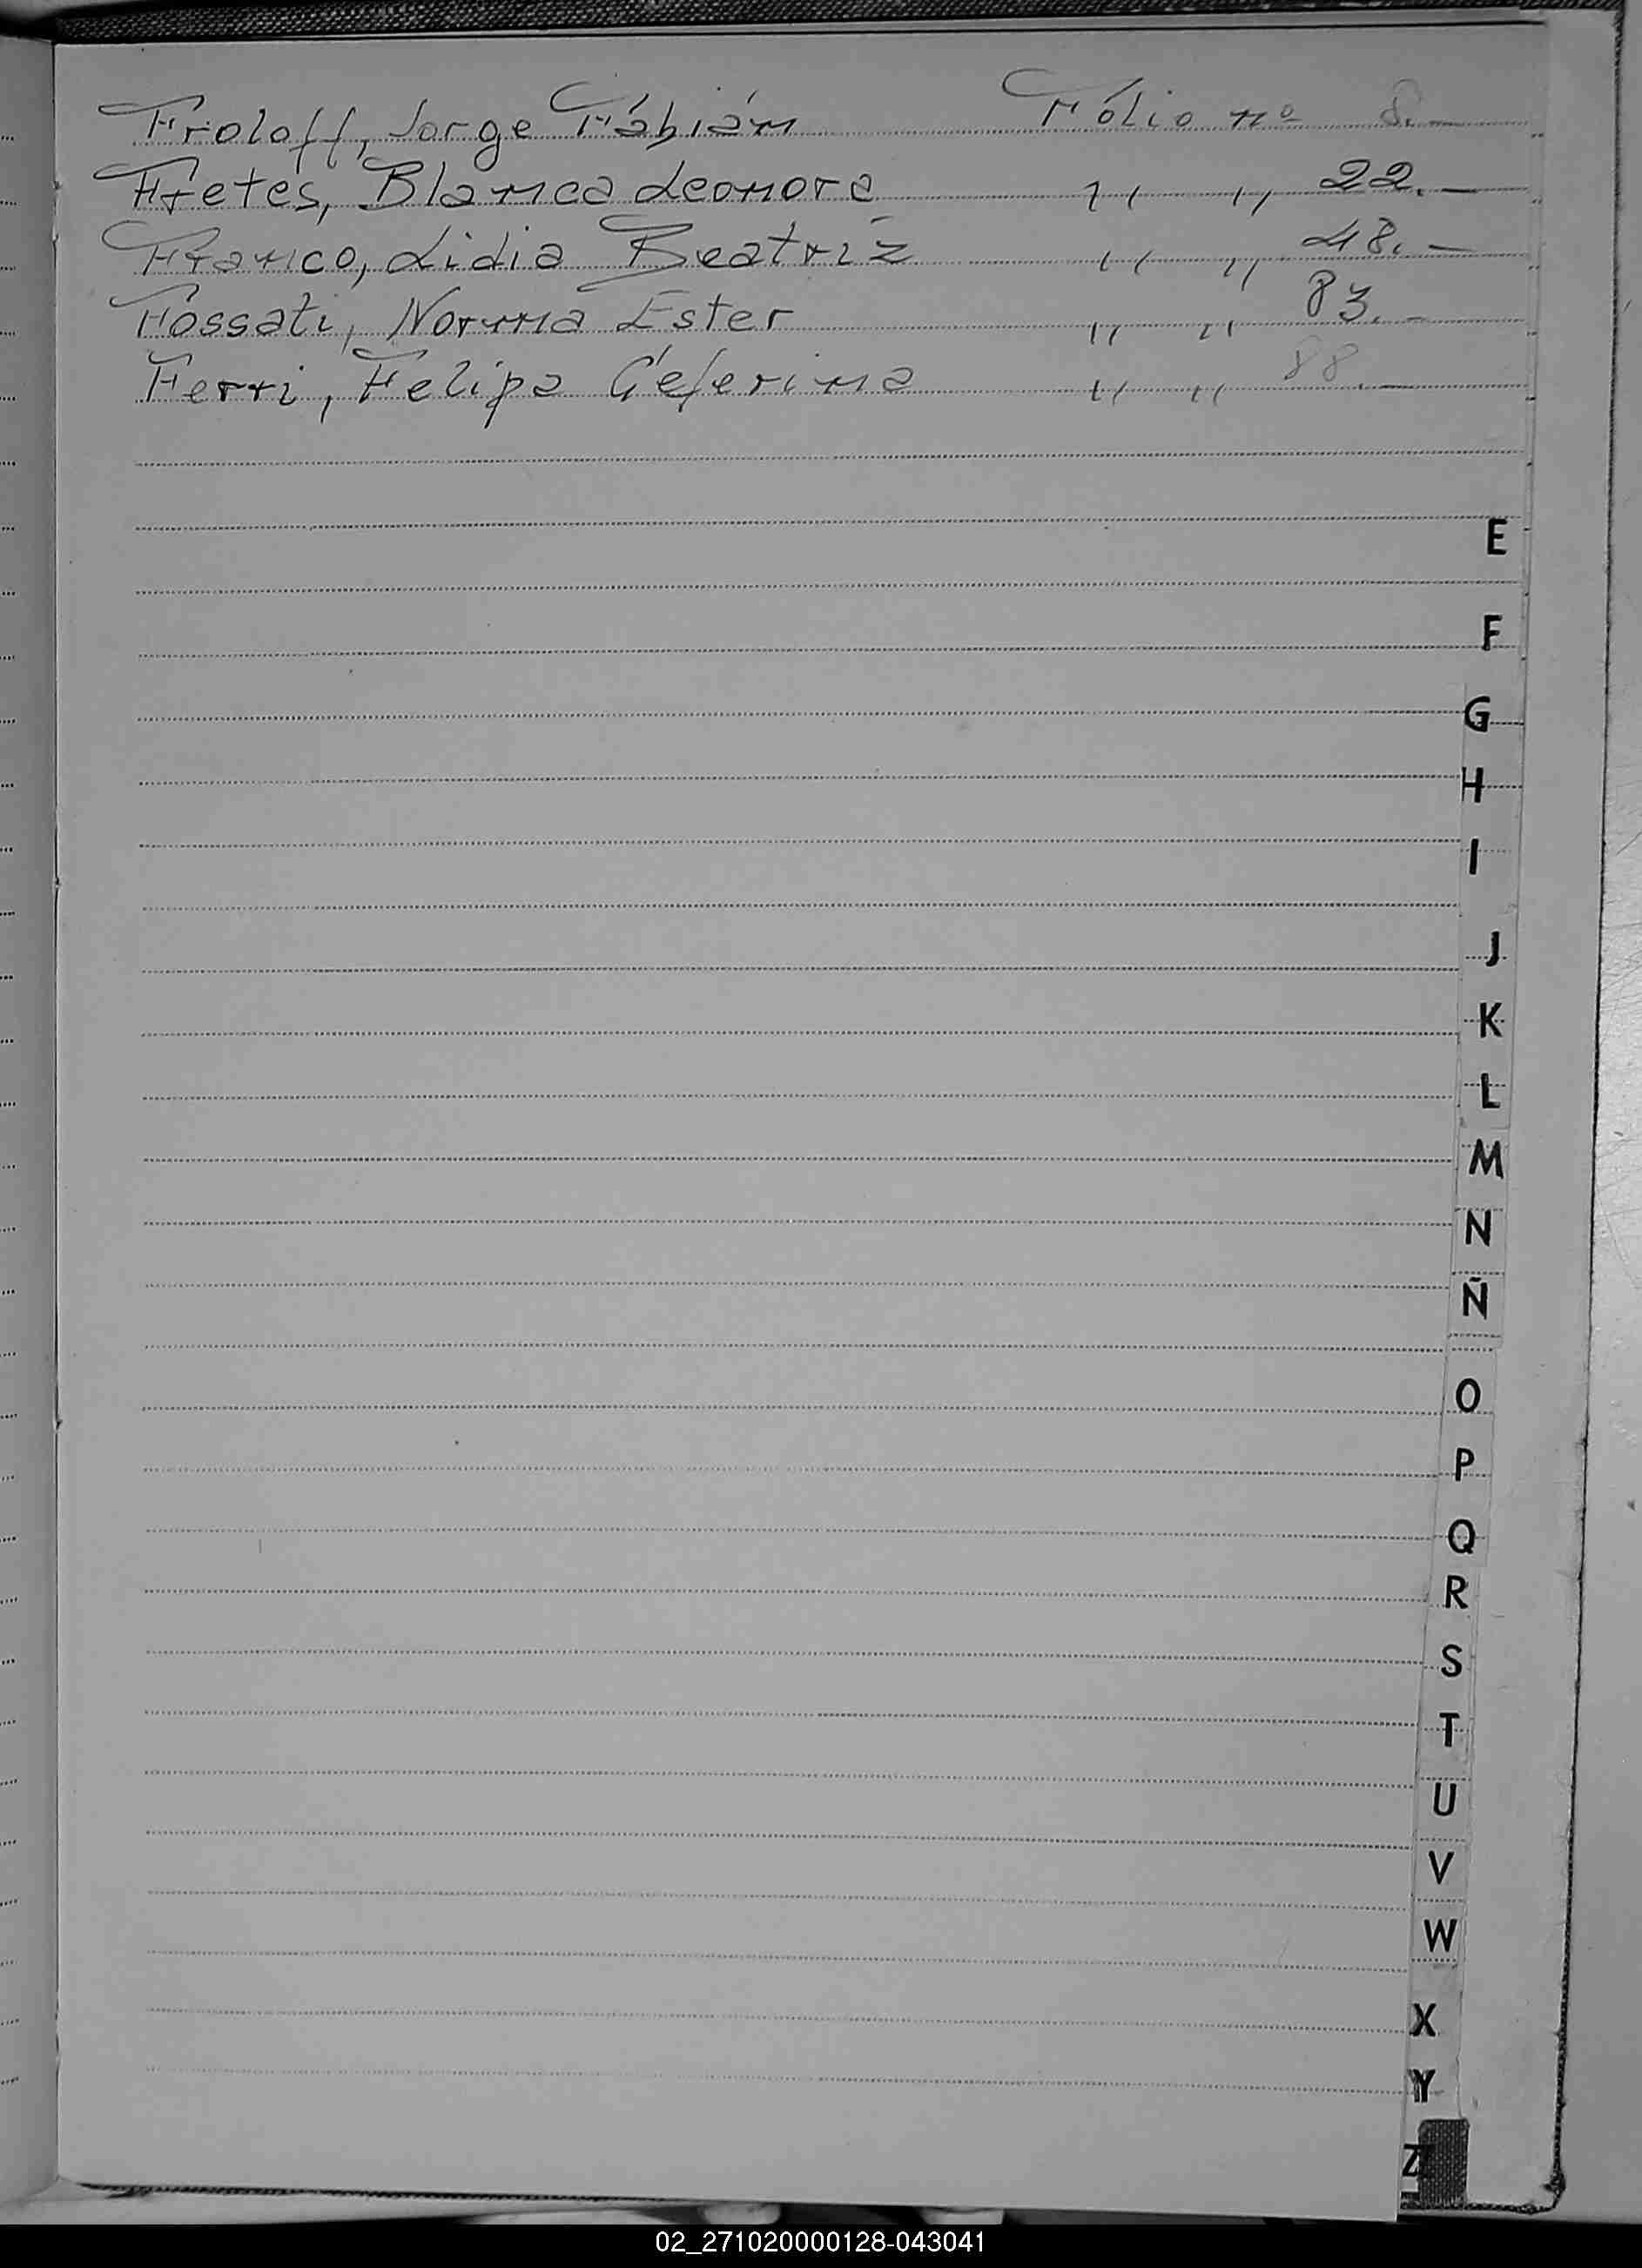 Froloff, Jorge Fábián Fólio nº 8.—
Fretes, Blanca Leonora ,, ,, 22.—
Franco, Lidia Beatríz ,, ,, 48.—
Fossati, Norma Ester ,, ,, 83.—
Ferri, Felipa Ceferina ,, ,, 88.—
E
F
G
H
I
J
K
L
M
N
Ñ
O
P
Q
R
S
T
U
V
W
X
Y
Z
02_271020000128-043041